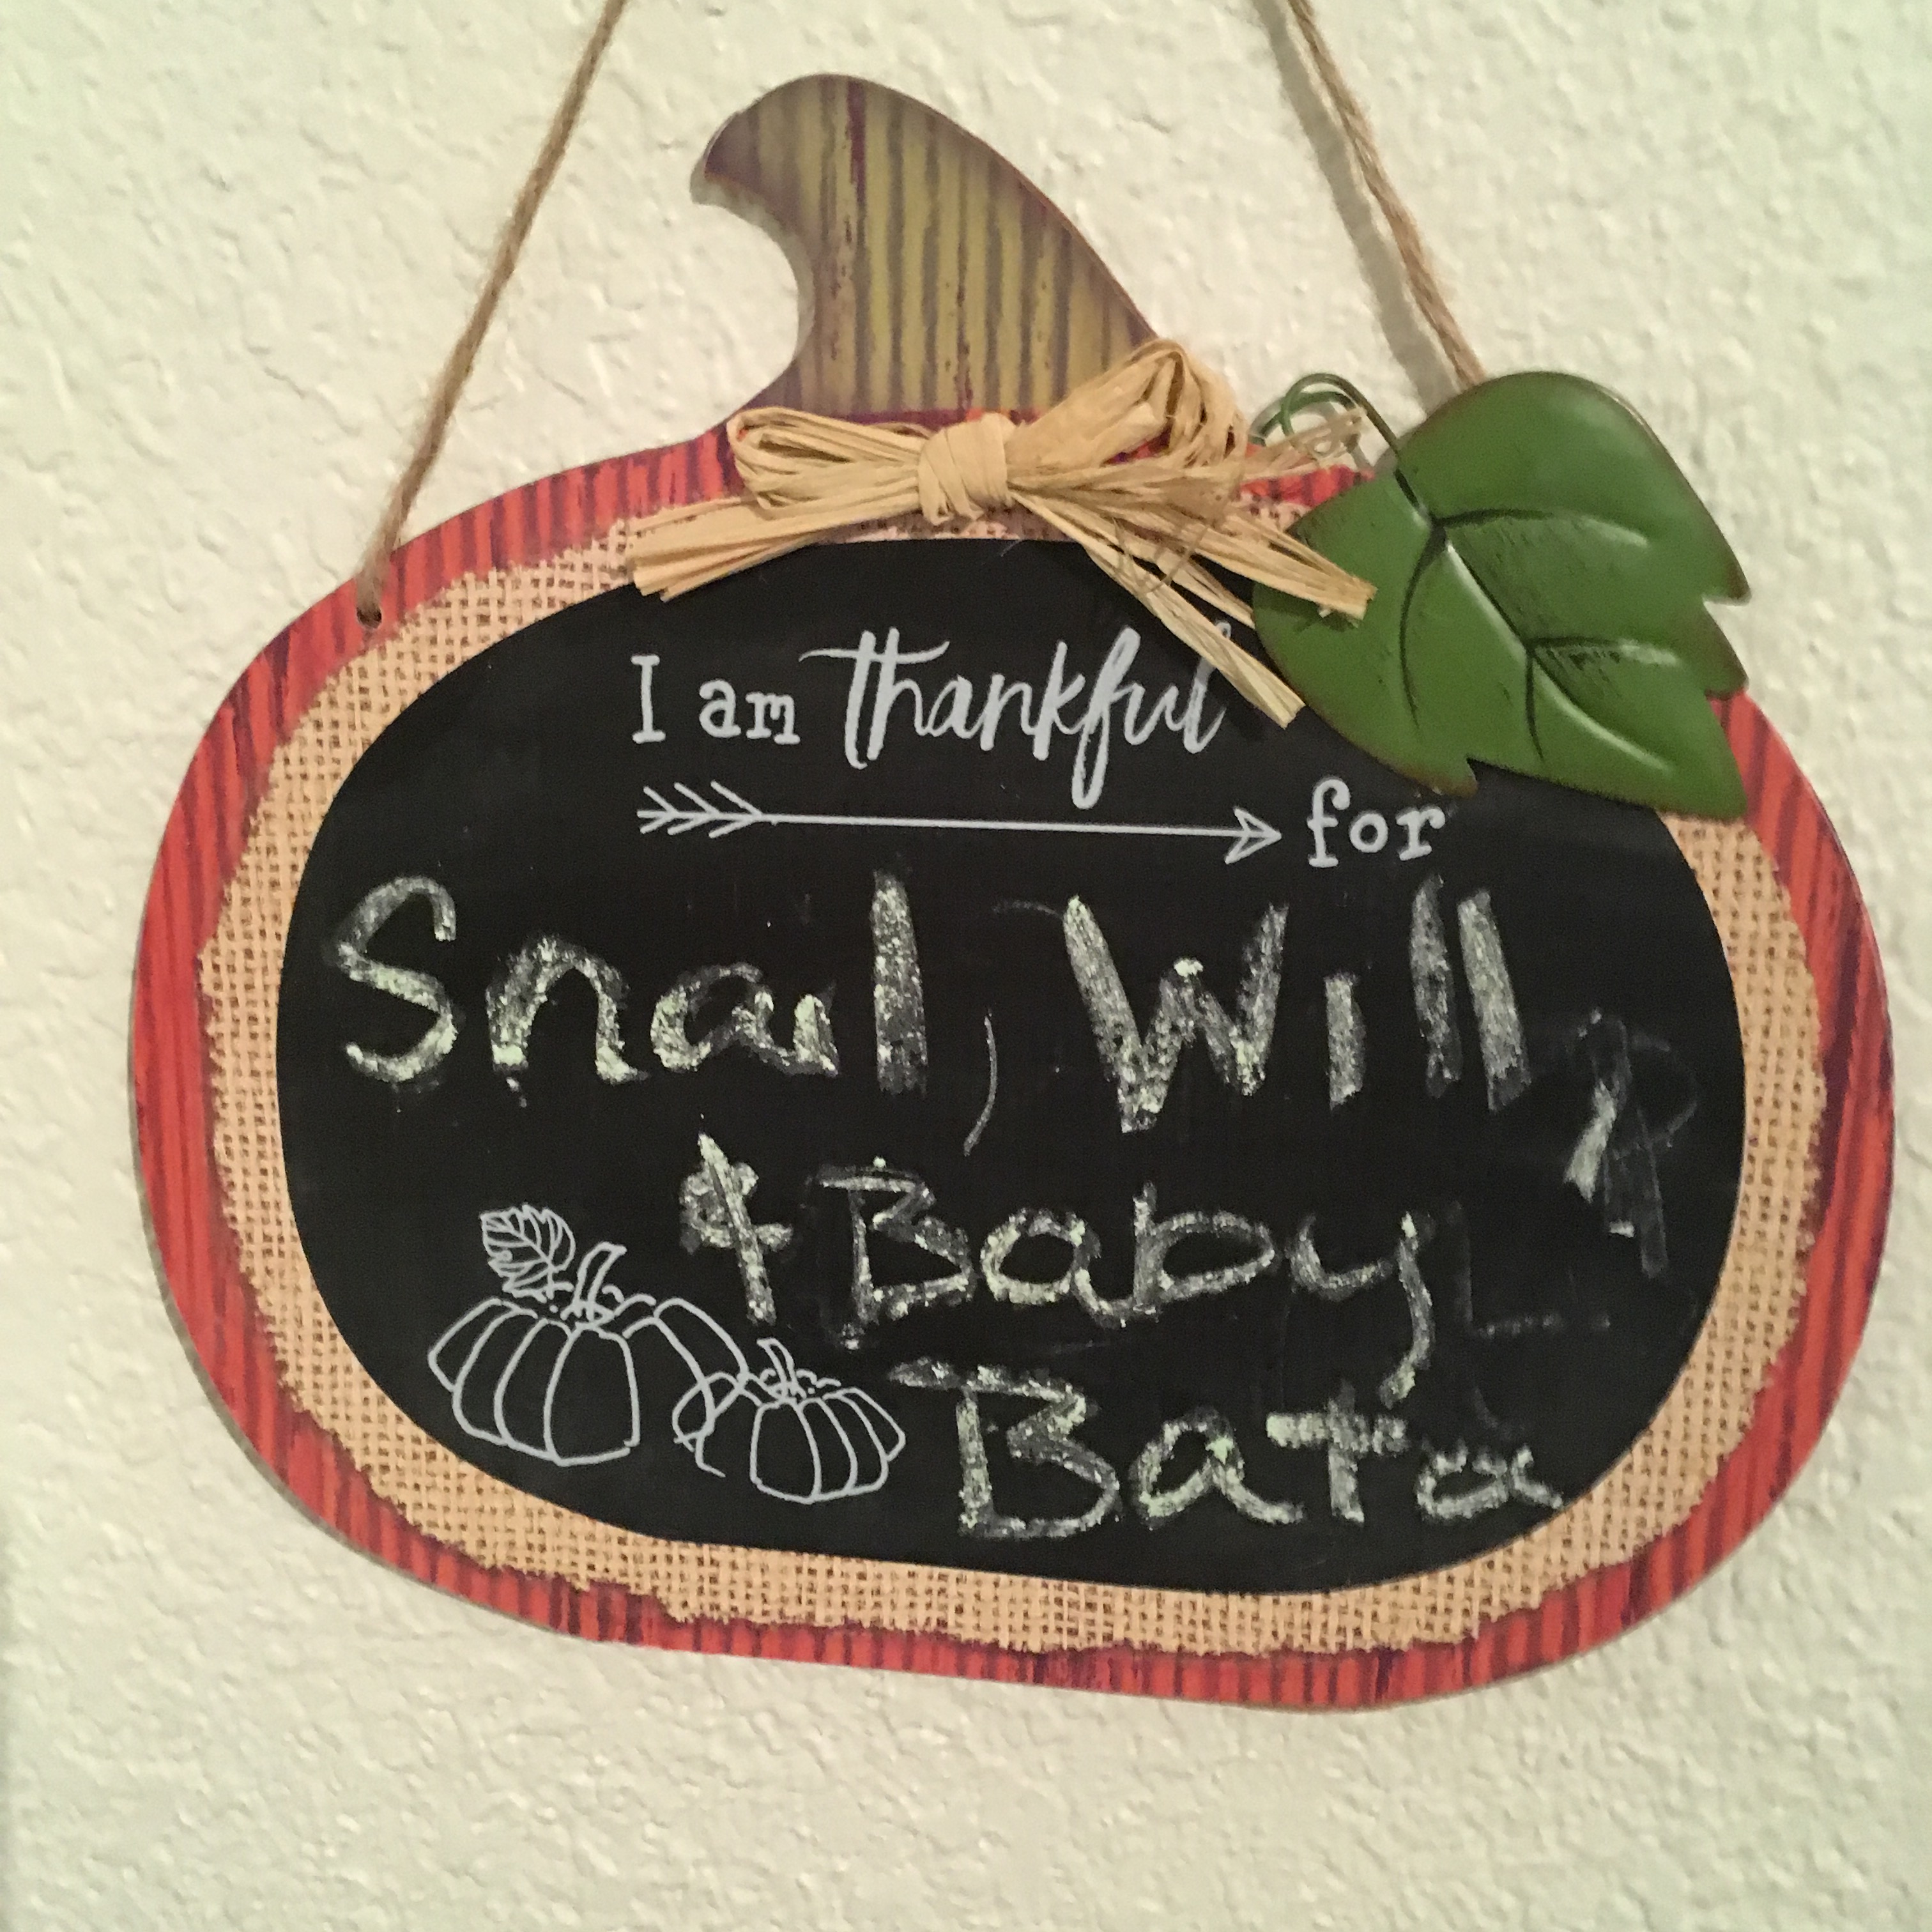 I am thankful
for
Snail, Will
& Baby
Bata